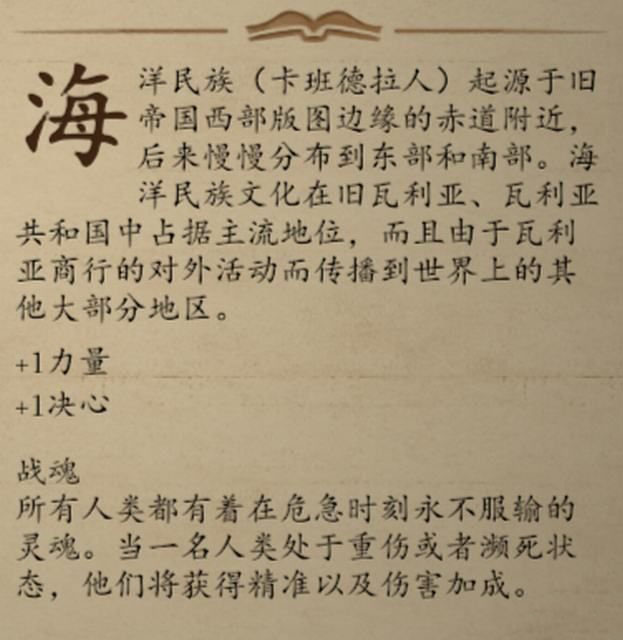 海洋民族（卡班德拉人）起源于旧
帝国西部版图边缘的赤道附近，
后来慢慢分布到东部和南部。海
洋民族文化在旧瓦利亚、瓦利亚
共和国中占据主流地位，而且由于瓦利
亚商行的对外活动而传播到世界上的其
他大部分地区。
+1力量
+1决心
战魂
所有人类都有着在危急时刻永不服输的
灵魂。当一名人类处于重伤或者濒死状
态，他们将获得精准以及伤害加成。